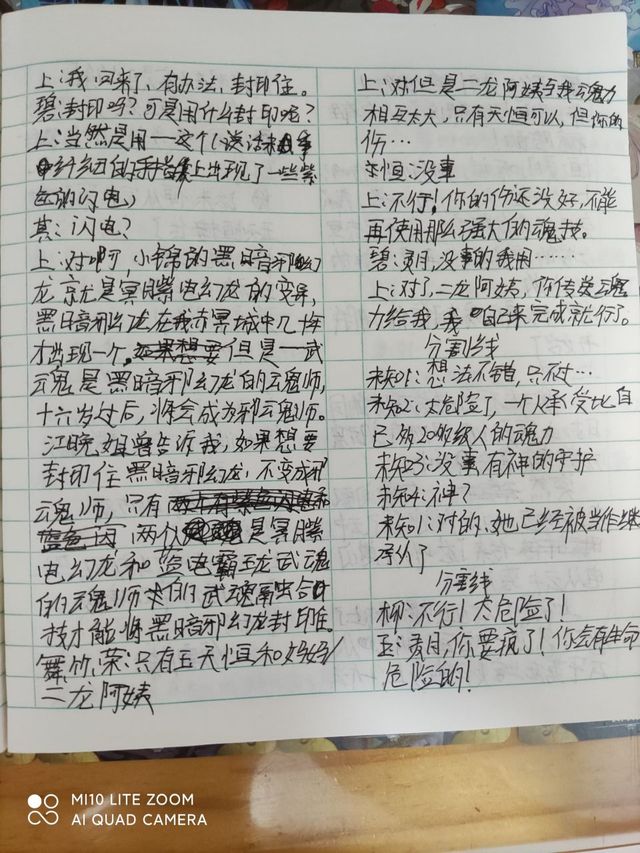 上:我回来了,有办法,封印住。
碧:封印吗?可是用什么封印呢?
上:当然是用一这个(说话未
纤细的手指上出现了一些紫
色的闪电)
其:闪电?
上:对啊,小锦的黑暗邪幻
龙就是冥紫电幻龙的变异,
黑暗邪幻龙在我赤冥城中几十年
才出现一个。如果想要但是一武
魂是黑暗邪幻龙的魂师,
十六岁过后,将会成为邪魂师。
江晚姐曾告诉我,如果想要
封印住黑暗邪幻龙,不变成邪
魂师,只有
两个是冥紫
电幻龙和蓝电霸王龙武魂
的魂师的武魂融合
技才能将黑暗邪幻龙封印住。
舞、竹、荣:只有玉天恒和妈妈/
二龙阿姨
上:对但是二龙阿姨与我魂力
相互太大,只有天恒可以,但你的
伤…
恒:没事
上:不行!你的伤还没好,不能
再使用那么强大的魂技。
碧:灵月,没事的我用……
上:对了,二龙阿姨,你传送魂
力给我,我自己来完成就行了。
分割线
未知1:想法不错,只不过…
未知2:太危险了,一个人承受比自
己多20级人的魂力
未知3:没事有神的守护
未知4:神?
未知1:对的,她已经被当作继
承人了
分割线
柳:不行!太危险了!
玉:灵月,你要疯了!你会有生命
危险的!
MI10 LITE ZOOM
AI QUAD CAMERA